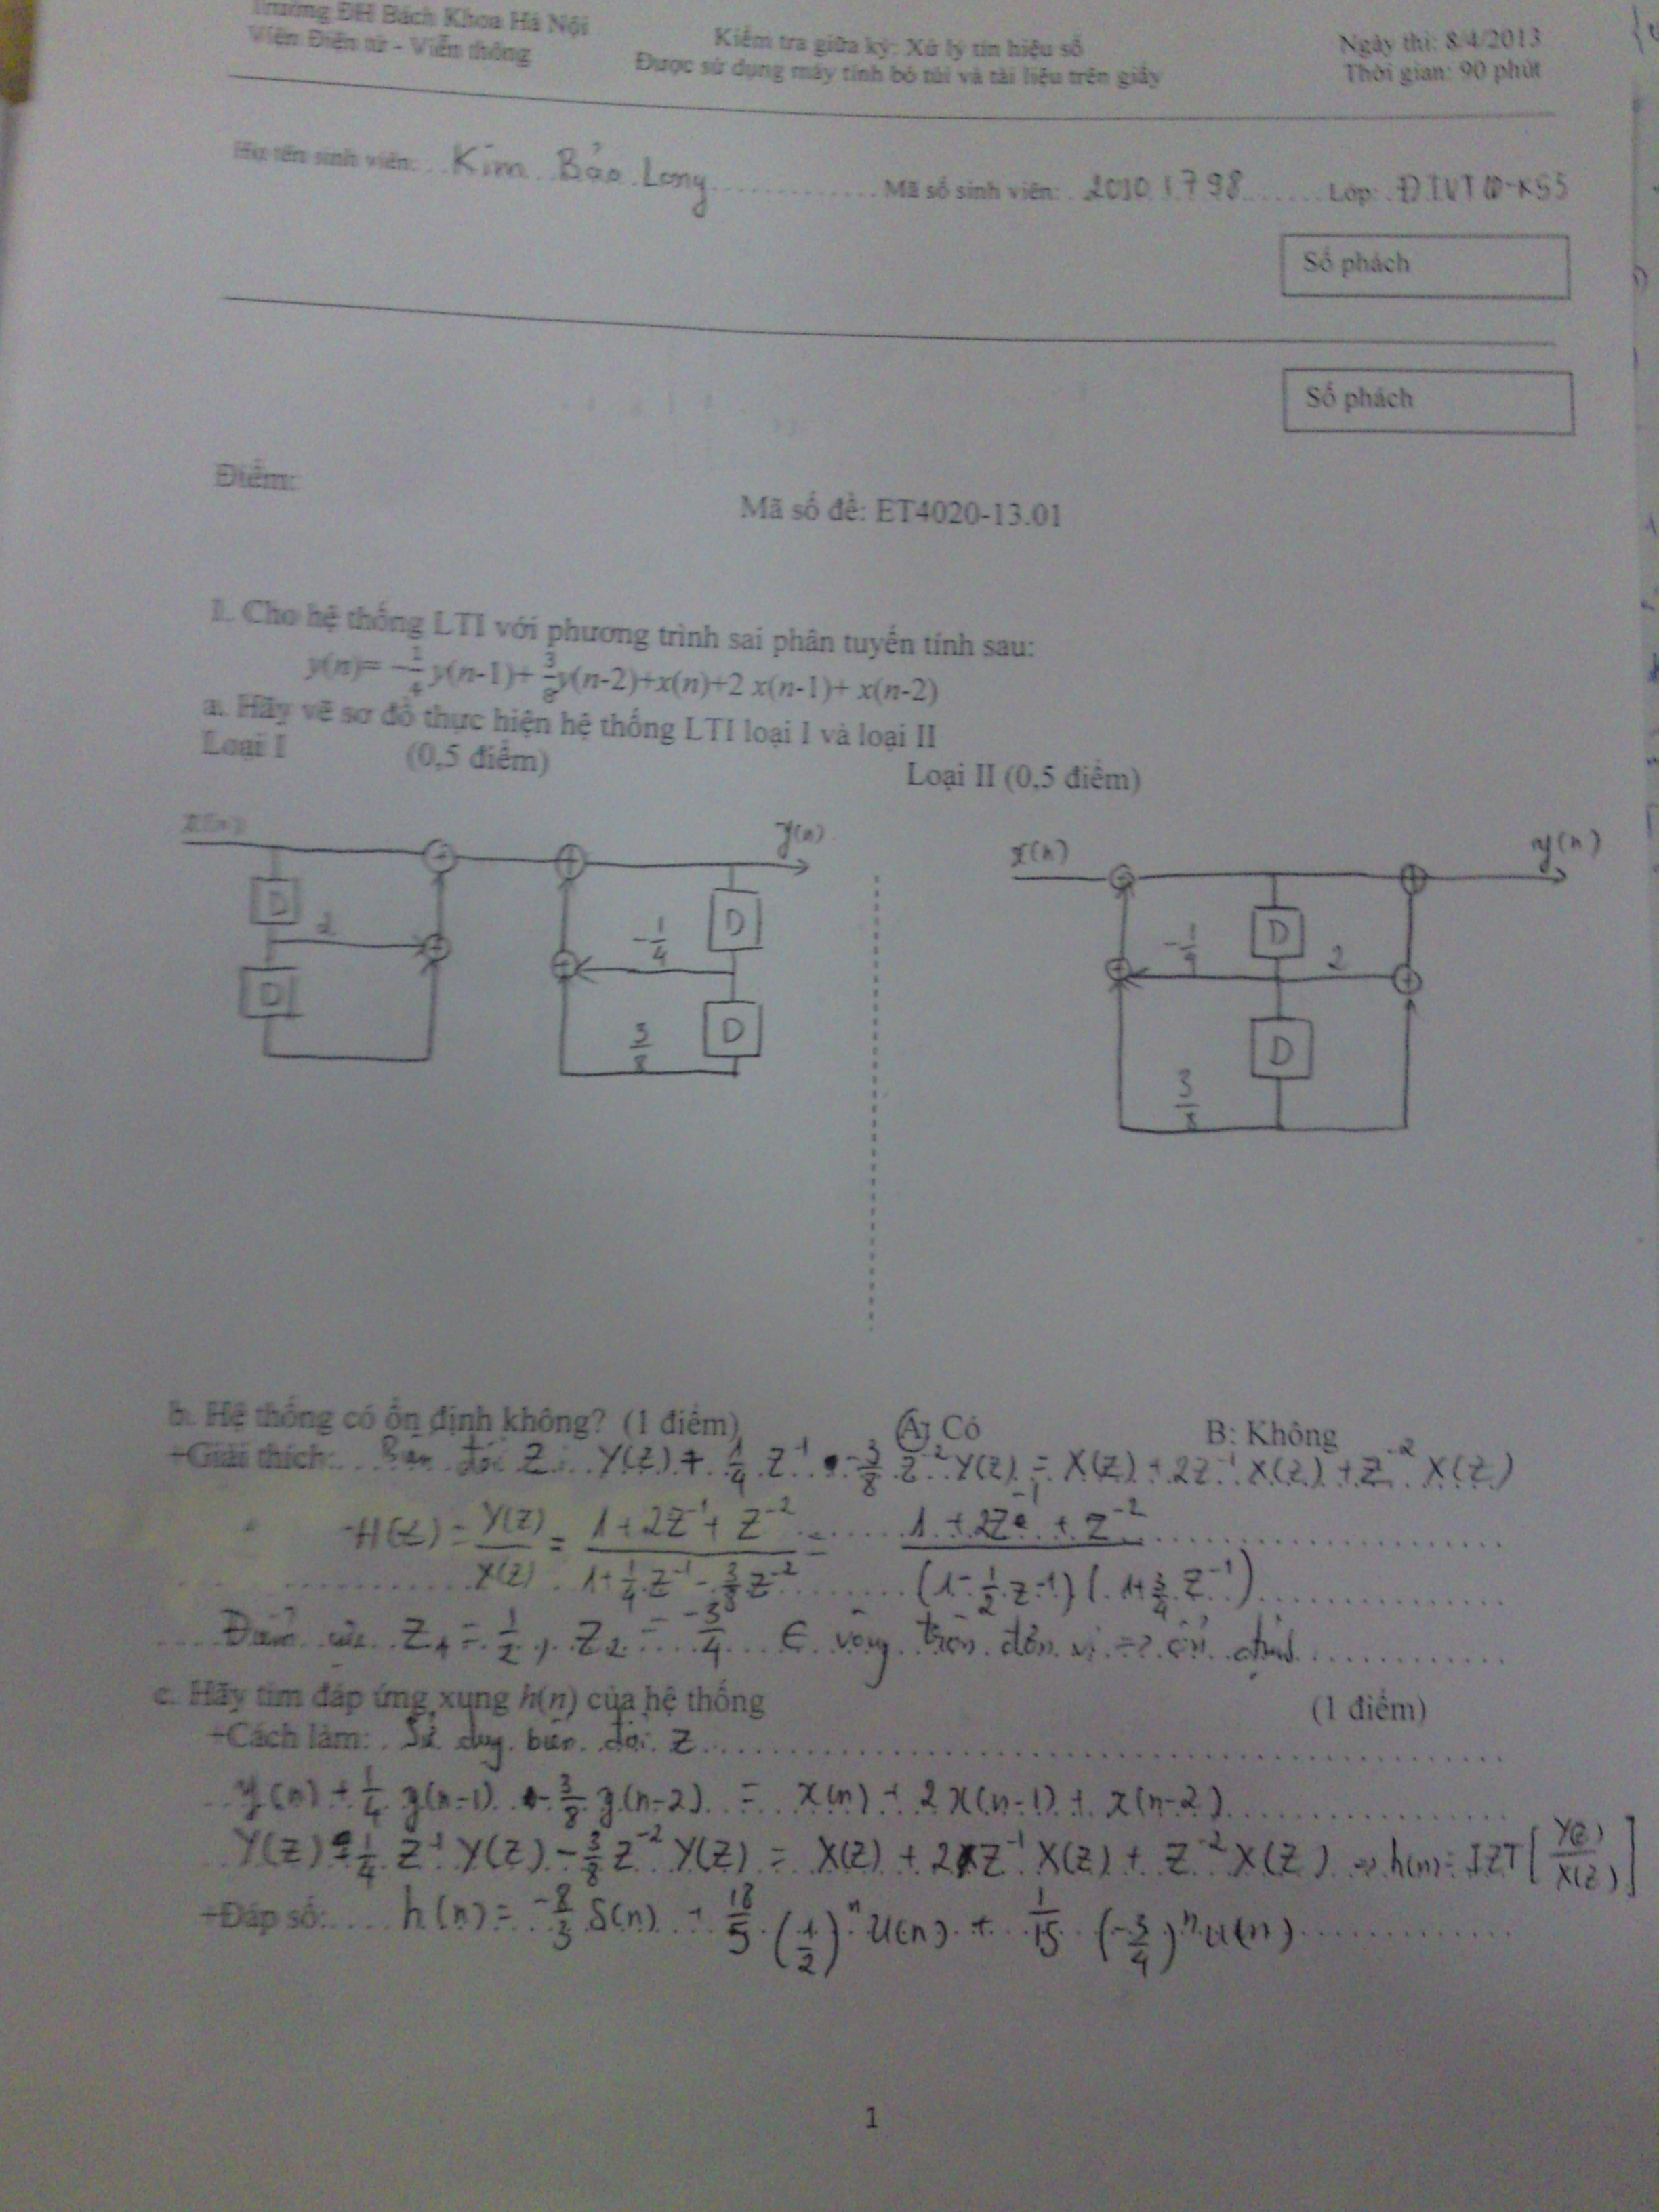 Trường ĐH Bách Khoa Hà Nội
Viện Điện tử - Viễn thông
Kiểm tra giữa kỳ: Xử lý tín hiệu số
Được sử dụng máy tính bỏ túi và tài liệu trên giấy
Ngày thi: 8/4/2013
Thời gian: 90 phút
Họ tên sinh viên: Kim Bảo Long Mã số sinh viên: 20101798 Lớp: ĐTVT10-K55
Số phách
Số phách
Điểm:
Mã số đề: ET4020-13.01
1. Cho hệ thống LTI với phương trình sai phân tuyến tính sau:
y(n)= -1/4 y(n-1)+ 3/8 y(n-2)+x(n)+2 x(n-1)+ x(n-2)
a. Hãy vẽ sơ đồ thực hiện hệ thống LTI loại I và loại II
Loại I (0,5 điểm) Loại II (0,5 điểm)
x(n) y(n) x(n) y(n)
D 2 -1/4 D -1/4 D 2
D 3/8 D 3/8 D
b. Hệ thống có ổn định không? (1 điểm) A: Có B: Không
+Giải thích: Biến đổi Z: Y(z) + 1/4 z^-1 - 3/8 z^-2 Y(z) = X(z) + 2z^-1 X(z) + z^-2 X(z)
H(z) = Y(z)/X(z) = (1+2z^-1+z^-2)/(1+1/4 z^-1 - 3/8 z^-2) = (1+2z^-1+z^-2)/((1-1/2 z^-1)(1+3/4 z^-1))
Điểm cực z1 = 1/2, z2 = -3/4 ∈ vòng tròn đơn vị => ổn định
c. Hãy tìm đáp ứng xung h(n) của hệ thống (1 điểm)
+Cách làm: Sử dụng biến đổi Z
y(n) + 1/4 y(n-1) - 3/8 y(n-2) = x(n) + 2x(n-1) + x(n-2)
Y(z) + 1/4 z^-1 Y(z) - 3/8 z^-2 Y(z) = X(z) + 2z^-1 X(z) + z^-2 X(z) => h(n) = IZT[Y(z)/X(z)]
+Đáp số: h(n) = -8/3 δ(n) + 18/5 (1/2)^n u(n) + 1/15 (-3/4)^n u(n)
1